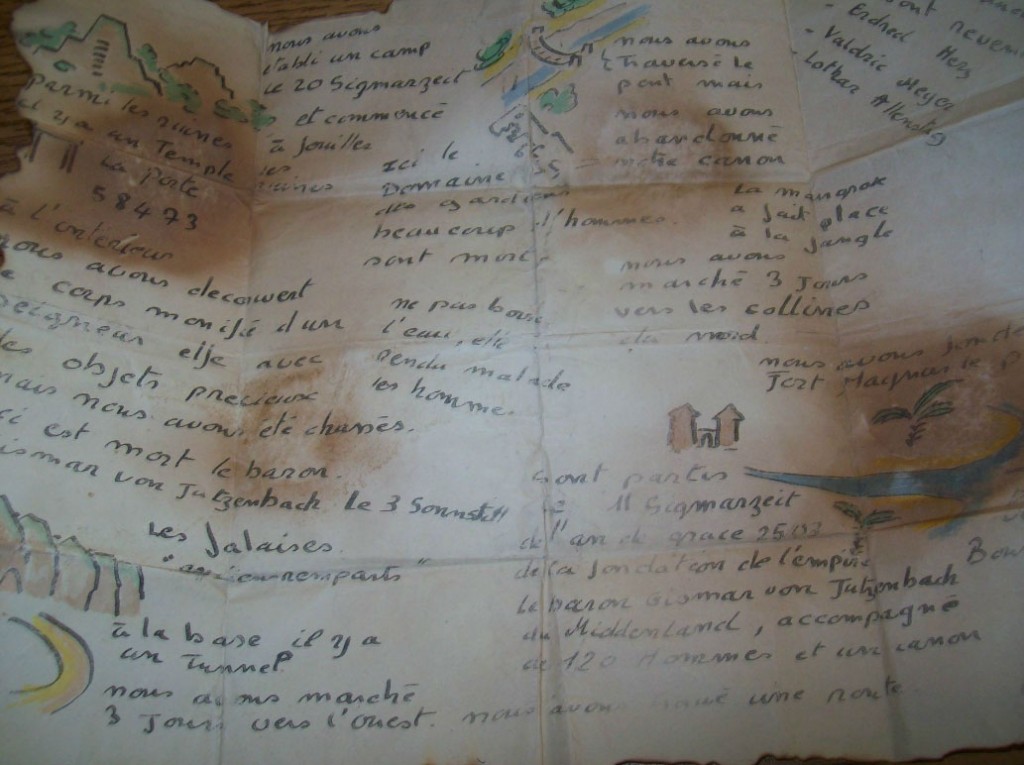 Parmi les ruines
il y a un Temple
La porte
58473
à l'intérieur
nous avons decouvert
corps monifié d'un
seigneur elfe avec
des objets precieux
mais nous avons été chassés.
ici est mort le baron.
Gismar von Jutzenbach le 3 Sonnstill
nous avons
établi un camp
le 20 Sigmarzeit
et commencé
à fouiller
les
ruines
ici le
Domaine
des gardiens
beaucoup d'hommes.
sont morts
ne pas boire
l'eau, elle
rendu malade
les homme.
nous avons
Traversé le
pont mais
nous avons
abandonné
notre canon
sont revenu
- Erdred Herz
- Valdric Meyer
Lothar Allenstag
La mangrove
a fait place
à la jungle
nous avons
marché 3 Jours
vers les collines
du nord.
nous avons
Fort Magnus le
Les falaises.
"ancien remparts"
à la base il y a
un Tunnel
nous avons marché
3 Jours vers l'ouest.
sont partis
11 Sigmarzeit
de l'an de grace 2503
de la fondation de l'empire
le baron Gismar von Jutzenbach
du Middenland, accompagné
de 120 Hommes et un canon
nous avons trouvé une route